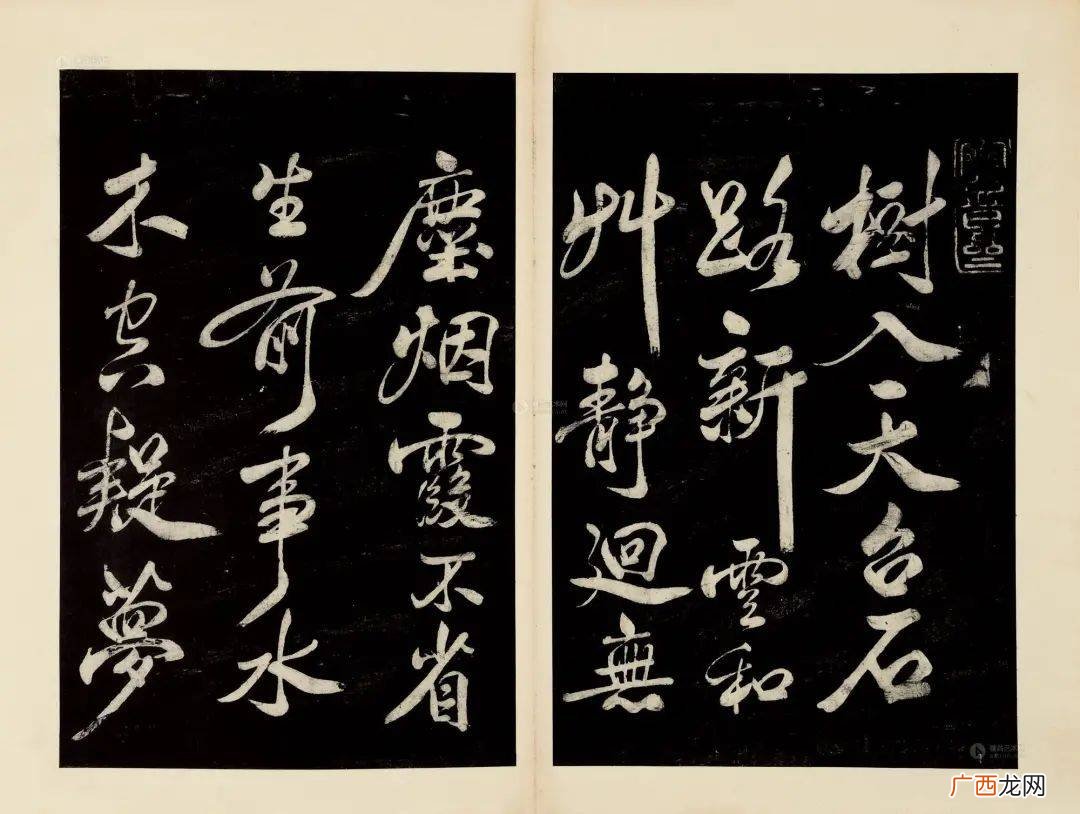 樹入天台石
路新雲和
艸靜迴無
塵烟霞不省
生前事水
木空疑夢
广西龙网